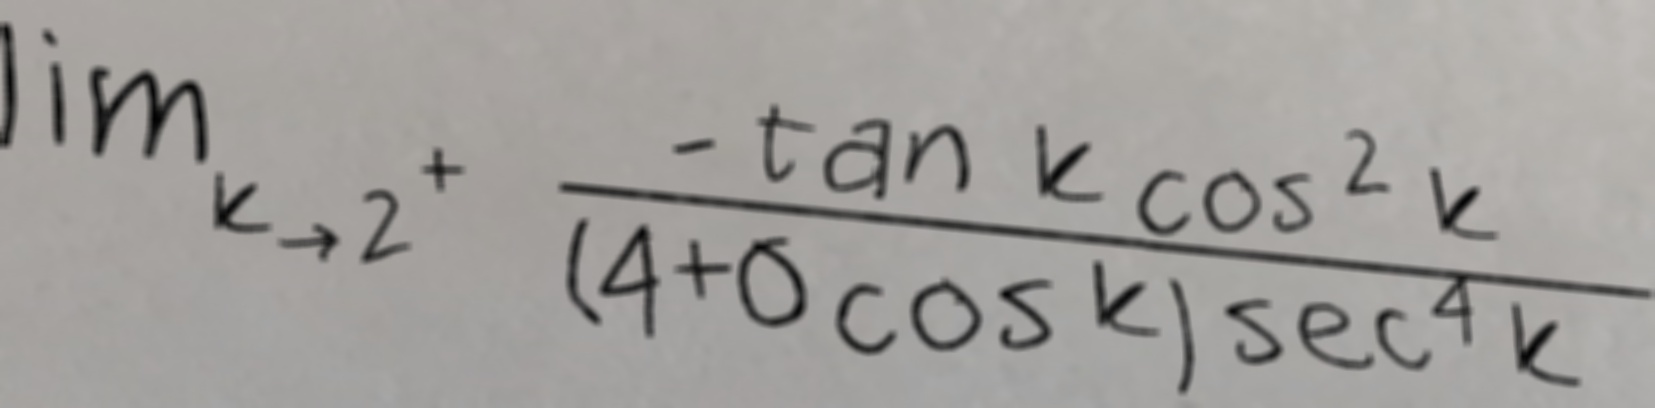 \lim_{k \to 2^+} \frac{-\tan k \cos^2 k}{(4+0 \cos k) \sec^4 k}